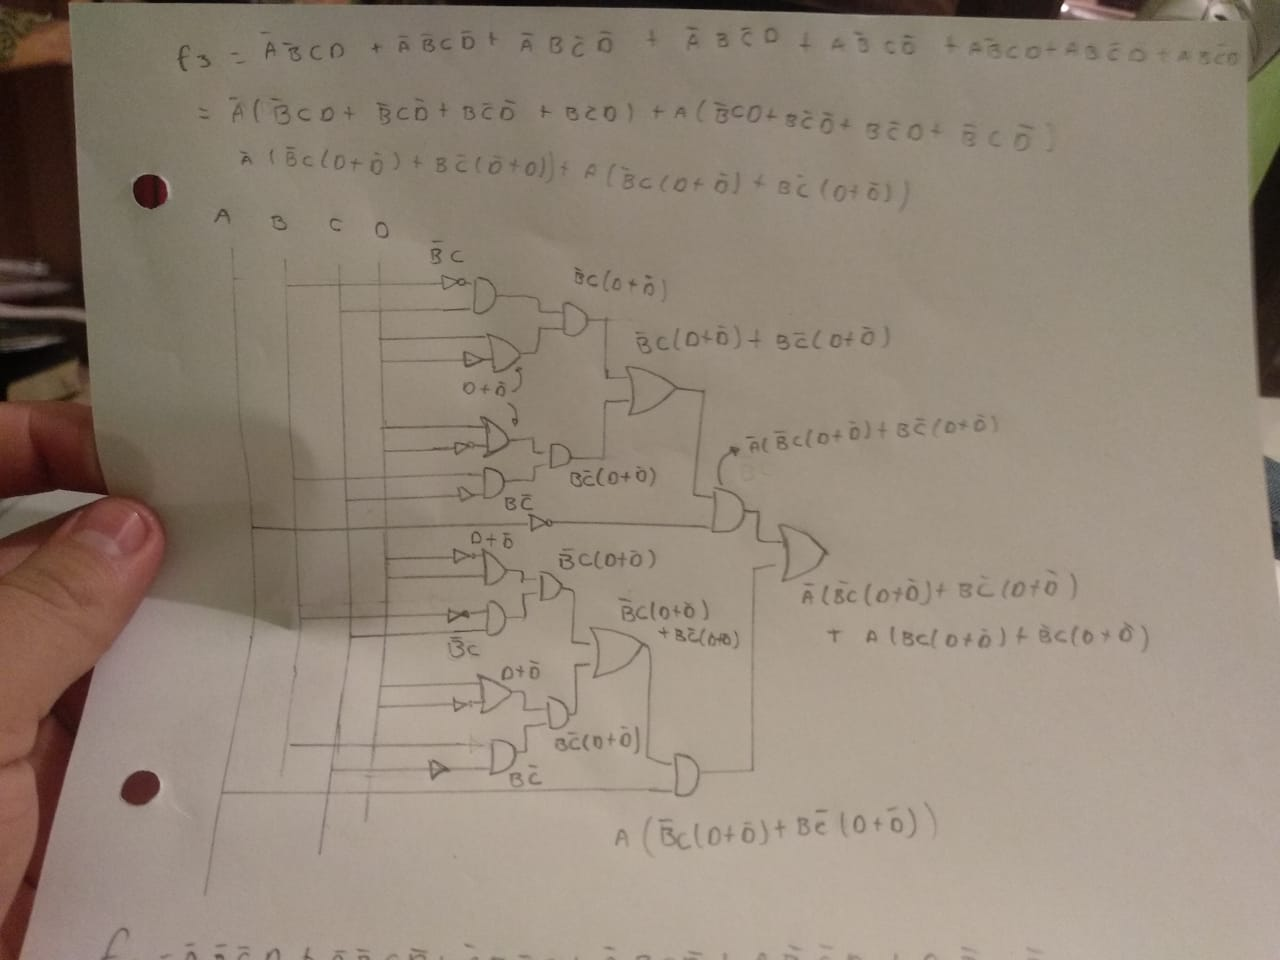 f3 = A̅B̅CD + A̅B̅CD̅ + A̅BC̅D̅ + A̅BC̅D + AB̅CD̅ + AB̅CD + ABC̅D + ABC̅D̅
= A̅(B̅CD + B̅CD̅ + BC̅D̅ + BC̅D) + A(B̅CD + BC̅D̅ + BC̅D + B̅CD̅)
A̅(B̅C(D+D̅) + BC̅(D̅+D)) + A(B̅C(D+D̅) + BC̅(D+D̅))
A B C D
B̅C
B̅C(D+D̅)
B̅C(D+D̅) + BC̅(D+D̅)
D+D̅
A̅(B̅C(D+D̅) + BC̅(D+D̅)
BC̅(D+D̅)
BC̅
D+D̅
B̅C(D+D̅)
A̅(B̅C(D+D̅) + BC̅(D+D̅)
+ A(BC(D+D̅) + B̅C(D+D̅)
B̅C(D+D̅)
+ BC̅(D+D̅)
B̅C
D+D̅
BC̅(D+D̅)
BC̅
A(B̅C(D+D̅) + BC̅(D+D̅))